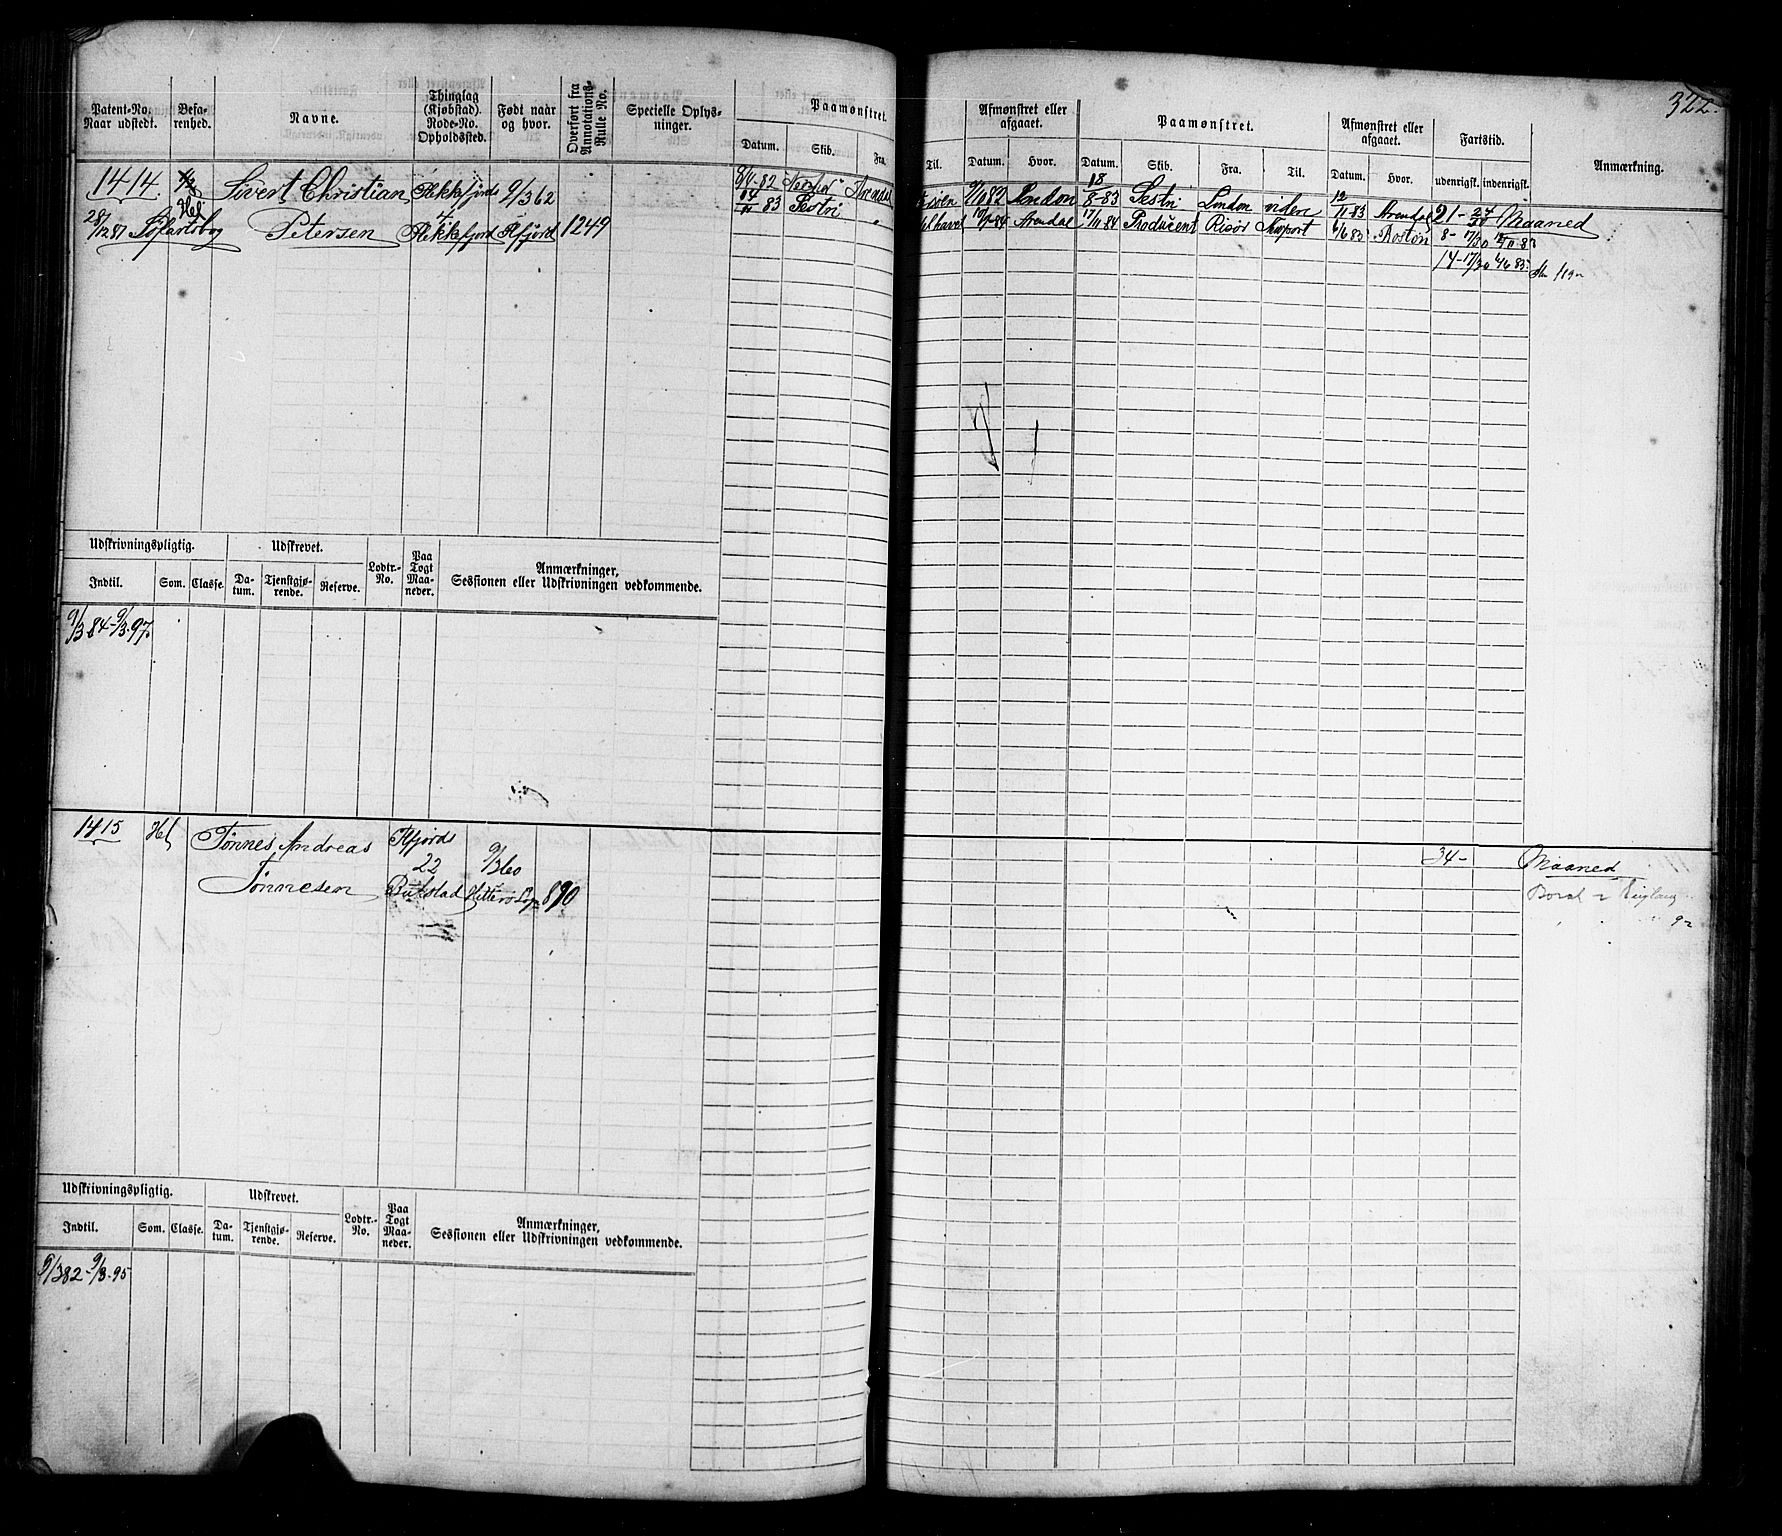 322.
Patent-No. Naar udstedt.
Befarenhed.
Navne.
Thinglag (Kjøbstad). Rode-No. Opholdssted.
Født naar og hvor.
Overført fra Annotations-Rulle No.
Specielle Oplysninger.
Paamønstret.
Datum. Skib. Fra. Til.
Afmønstret eller afgaaet.
Datum. Hvor.
Paamønstret.
Datum. Skib. Fra. Til.
Afmønstret eller afgaaet.
Datum. Hvor.
Fartstid.
udenrigsk. indenrigsk.
Anmærkning.
1414. Sivert Christian Flekkefjords 9/3 62
28/12 81 Hel Petersen 4 Flekkefjord Ffjord 1249
82 Arendal 82 London 18 8-83 Sestri London videre 12/11 83 Arendal 21- Maaned
83 Sestri " 84 Arendal 17/11 84 Producent Risør Newport 6/6 85 Boston 8- 17/30
14- 17/30 6/6 85
Udskrivningspligtig. Udskrevet. Lodtr.-No. Paa Togt Maaneder. Anmærkninger, Sessionen eller Udskrivningen vedkommende.
Indtil. Som. Classe. Datum. Tjenstgjørende. Reserve.
9/3 84-9/3.97.
1415 Hel Tønnes Andreas Ffjords 9/3 60 34- Maaned
Tønnesen 22 Hitterø 890 England
Udskrivningspligtig. Udskrevet. Lodtr.-No. Paa Togt Maaneder. Anmærkninger, Sessionen eller Udskrivningen vedkommende.
Indtil. Som. Classe. Datum. Tjenstgjørende. Reserve.
9/3 82-9/3.95